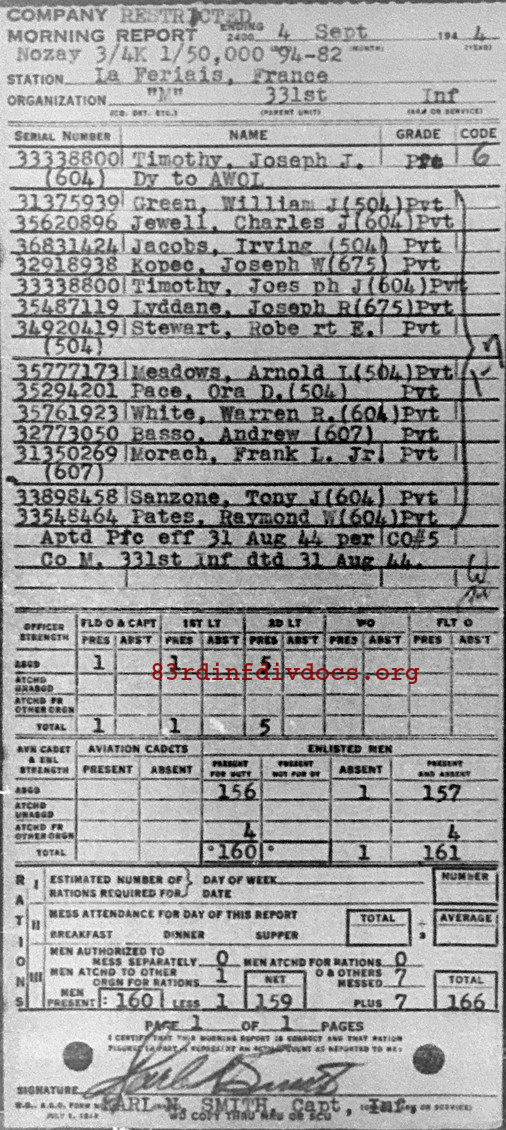 COMPANY RESTRICTED
MORNING REPORT ENDING 2400 4 Sept 194 4
Nozay 3/4K 1/50,000 "94-82 (MONTH) (YEAR)
STATION La Feriais, France
ORGANIZATION "M" 331st Inf
(CO. DET. ETC.) (PARENT UNIT) (ARM OR SERVICE)
SERIAL NUMBER NAME GRADE CODE
33338800 Timothy, Joseph J. Pfc 6
(604) Dy to AWOL
31375939 Green, William J(504) Pvt
35620896 Jewell, Charles J(604) Pvt
36831424 Jacobs, Irving (504) Pvt
32918938 Kopec, Joseph W(675) Pvt
33338800 Timothy, Joes ph J(604) Pvt
35487119 Lyddane, Joseph R(675) Pvt
34920419 Stewart, Robe rt E. Pvt
(504)
35777173 Meadows, Arnold L(504) Pvt
35294201 Pace, Ora D.(504) Pvt
35761923 White, Warren R.(604) Pvt
32773050 Basso, Andrew (607) Pvt
31350269 Morach, Frank L. Jr. Pvt
(607)
33898458 Sanzone, Tony J(604) Pvt
33548464 Pates, Raymond W(604) Pvt
Aptd Pfc eff 31 Aug 44 per CO#5
Co M, 331st Inf dtd 31 Aug 44.
OFFICER STRENGTH FLD O & CAPT 1ST LT 2D LT WO FLT O
PRES ABS'T PRES ABS'T PRES ABS'T PRES ABS'T PRES ABS'T
ASGD 1 1 5
83rdinfdivdocs.org
ATCHD UNASGD
ATCHD FR OTHER ORGN
TOTAL 1 1 5
AVN CADET & ENL STRENGTH AVIATION CADETS ENLISTED MEN
PRESENT ABSENT PRESENT FOR DUTY PRESENT NOT FOR DY ABSENT PRESENT AND ABSENT
ASGD 156 1 157
ATCHD UNASGD
ATCHD FR OTHER ORGN 4 4
TOTAL 160 1 161
RATIONS
I ESTIMATED NUMBER OF RATIONS REQUIRED FOR } DAY OF WEEK DATE NUMBER
II MESS ATTENDANCE FOR DAY OF THIS REPORT TOTAL ÷ 3 AVERAGE
BREAKFAST DINNER SUPPER
III MEN AUTHORIZED TO MESS SEPARATELY 0 MEN ATCHD FOR RATIONS 0
MEN ATCHD TO OTHER ORGN FOR RATIONS 1 NET O & OTHERS MESSED 7 TOTAL
MEN PRESENT: 160 LESS 1 159 PLUS 7 166
PAGE 1 OF 1 PAGES
I CERTIFY THAT THIS MORNING REPORT IS CORRECT AND THAT RATION
SIGNATURE Karl Smith
KARL N. SMITH, Capt, Inf.
W.D., A.G.O. FORM NO. (ARM OR SERVICE)
JULY 1, 1943 WD COPY THRU MRU OR SCU